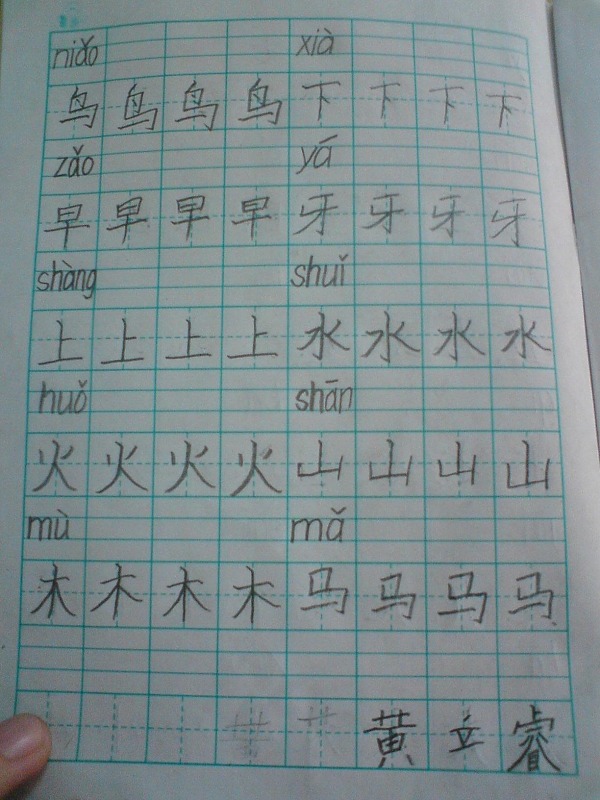 niǎo xià
鸟 鸟 鸟 鸟 下 下 下 下
zǎo yá
早 早 早 早 牙 牙 牙 牙
shàng shuǐ
上 上 上 上 水 水 水 水
huǒ shān
火 火 火 火 山 山 山 山
mù mǎ
木 木 木 木 马 马 马 马
黄 立 睿